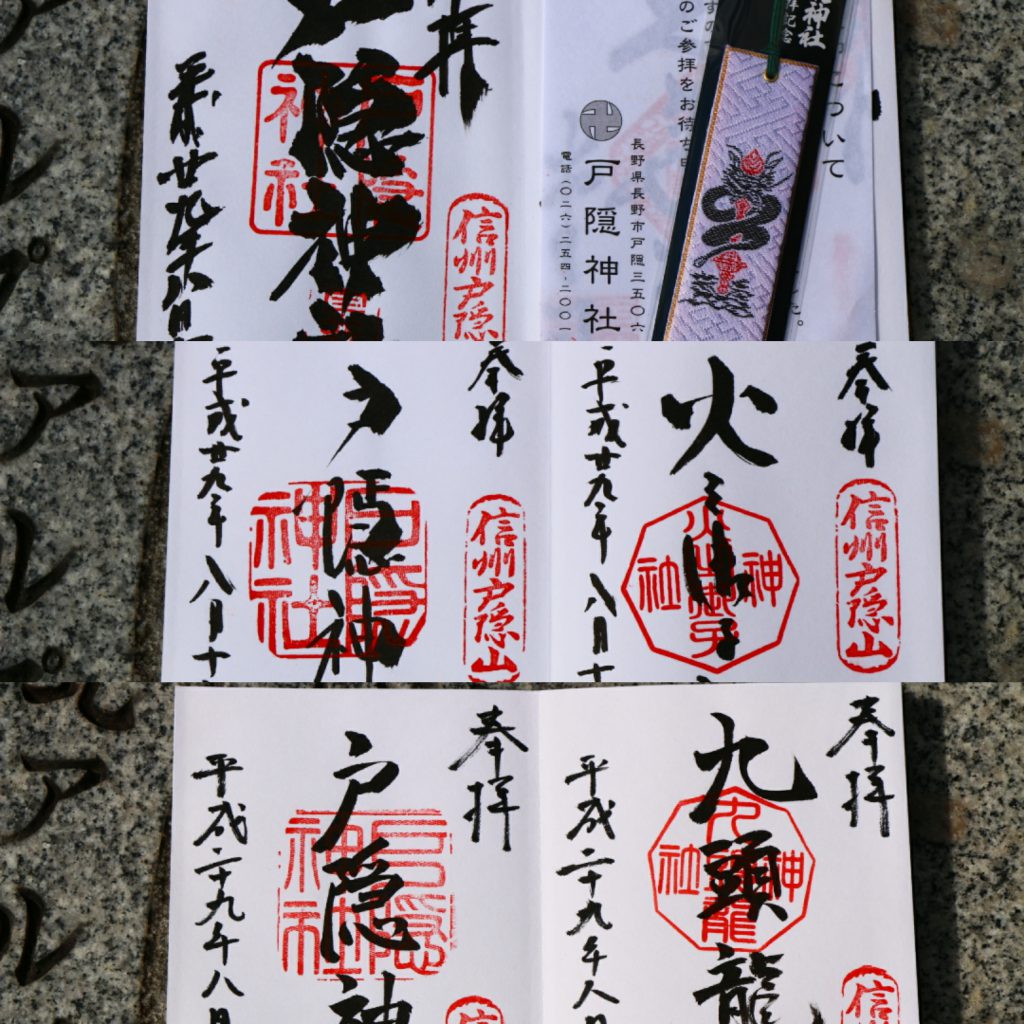 奉拝
戸隠神社
神社
信州戸隠
平成廿九年八月
すので
のご参拝をお待ち申
戸隠神社
長野県長野市戸隠三五〇六
電話(〇二六)二五四-二〇〇一
神社
記念
について
た。
アルプ
奉拝
戸隠神
戸隠神社
信州戸隠山
平成廿九年八月十
奉拝
火之御子
火之御子神社
信州戸隠山
平成廿九年八月十
アルプ
奉拝
戸隠神
戸隠神社
信
平成二十九年八月
奉拝
九頭龍
九頭龍神社
信
平成二十九年八月
アル